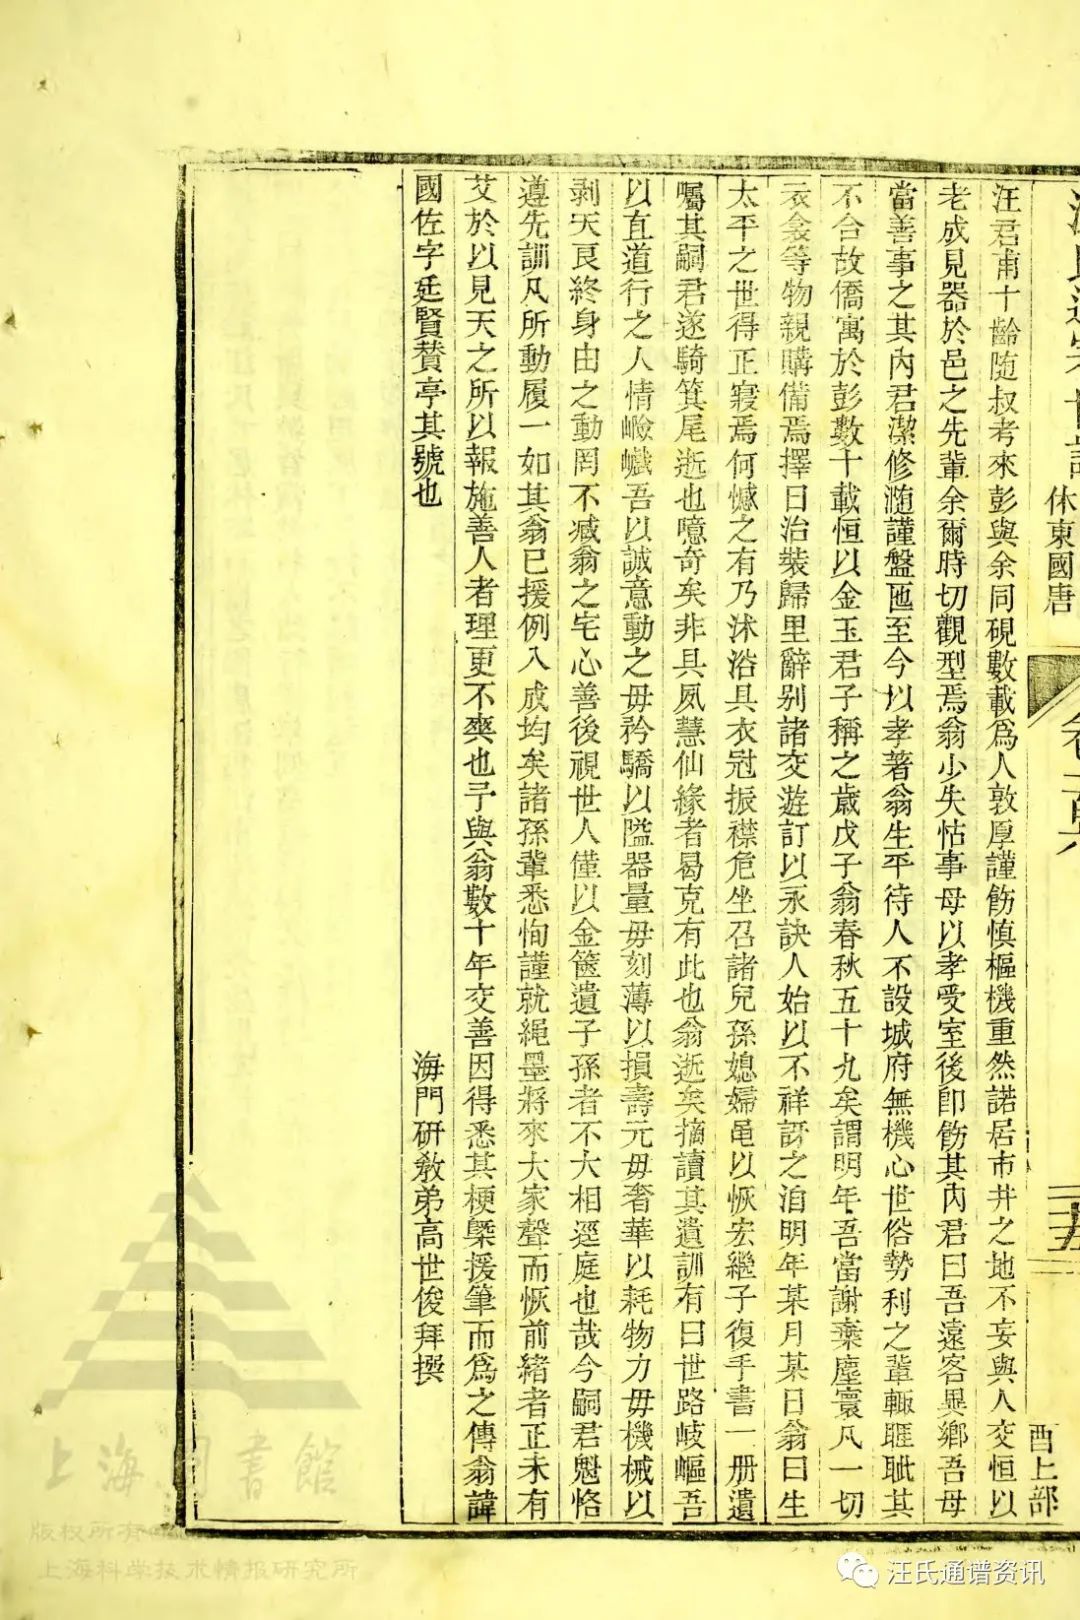 休東國唐
酉上部
汪君甫十齡随叔考來彭與余同硯數載爲人敦厚謹飭慎樞機重然諾居市井之地不妄與人交恒以
老成見器於邑之先輩余爾時切觀型焉翁少失怙事母以孝受室後卽飭其內君曰吾遠客異鄉吾母
當善事之其內君潔修瀡謹盤匜至今以孝著翁生平待人不設城府無機心世俗勢利之輩輙睚眦其
不合故僑寓於彭數十載恒以金玉君子稱之歲戊子翁春秋五十九矣謂明年吾當謝棄塵寰凡一切
衣衾等物親購備焉擇日治裝歸里辭别諸交遊訂以永訣人始以不祥訝之洎明年某月某日翁曰生
太平之世得正寢焉何憾之有乃沐浴具衣冠振襟危坐召諸兒孫媳婦黽以恢宏繼子復手書一册遺
囑其嗣君遂騎箕尾逝也噫奇矣非具夙慧仙緣者曷克有此也翁逝矣摘讀其遺訓有曰世路岐嶇吾
以直道行之人情嶮巇吾以誠意動之毋矜驕以隘器量毋刻薄以損壽元毋奢華以耗物力毋機械以
剥天良終身由之動罔不臧翁之宅心善後視世人僅以金篋遺子孫者不大相逕庭也哉今嗣君魁恪
遵先訓凡所動履一如其翁已援例入成均矣諸孫輩悉恂謹就繩墨將來大家聲而恢前緒者正未有
艾於以見天之所以報施善人者理更不爽也予與翁數十年交善因得悉其梗槩援筆而爲之傳翁諱
國佐字廷賢賛亭其號也
海門研教弟高世俊拜撰
上海圖書館
版权所有
上海科学技术情报研究所
汪氏通谱资讯